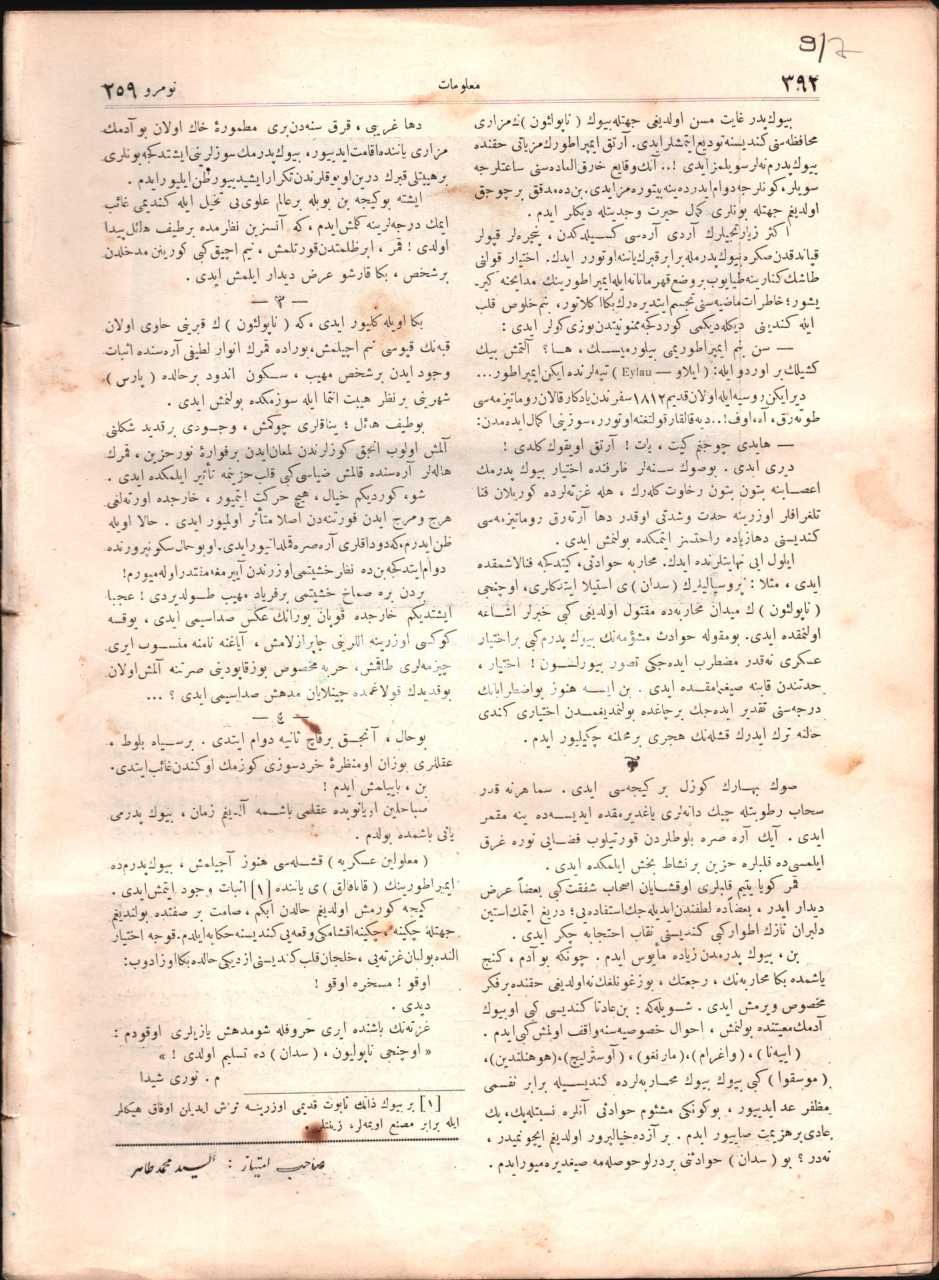 9/7
٣٩٢
معلومات
نومرو ٢٥٩
بیوك پدر غایت مسن اولدیغی جهتله بیوك ( ناپولئون ) ك مزاری
محافظه سی كندیسنه تودیع ایتمشلر ایدی. آرتق ایمپراطورك مزیاتی حقنده
بیوك پدرم نه لر سویلمز ایدی !.. آنك وقایع خارق العاده سنی ساعتلرجه
سویلر، كونلرجه دوام ایدر ده ینه بیتوره مز ایدی. بن ده مدقق بر چوجق
اولدیغم جهتله بونلری كمال حیرت و جدیتله دیكلر ایدم .
اكثر زیارتجیلرك آردی آره سی كسیلدكدن ، پنجره لر قپولر
قپاندقدن صكره بیوك پدرمله برابر قبرك یاننه اوتورر ایدك. اختیار قولنی
طاشك كنارینه طیایوب بر وضع قهرمانانه ایله ایمپراطورینك مدایحنه
یشور؛ خاطرات ماضیه سنی تجسیم ایتدیره رك بكا اكلاتور، بنم خلوص قلب
ایله كندینی دیكله دیكمی كوردكجه ممنونیتدن یوزی كولر ایدی :
— سن بنم ایمپراطوریمی بیلورمیسك ، ها ؟ آلتمش بیك
كشیلك بر اوردو ایله : ( ایلاو — Eylau ) تپه لرنده ایكن ایمپراطور ...
دیر ایكن روسیه ایله اولان قدیم ١٨١٢ سفرندن یادكار قالان روماتیزمه سی
طوته رق، آه، اوف!.. دیه قالقار قولتغنه اوتورر، سوزینی اكمال ایده مدن:
— هایدی چوجغم كیت ، یات ! آرتق اویقوك كلدی !
دری ایدی . بو صوك سنه لر ظرفنده اختیار بیوك پدرمك
اعصابنه بتون بتون رخاوت كله رك ، هله غزته لرده كوریلان فنا
تلغرافلر اوزرینه حدت و شدتی اوقدر دها آرته رق روماتیزمه سی
كندیسنی دها زیاده راحتسز ایتمكده بولنمش ایدی .
ایلول ایی نهایتلرنده ایدك. محاربه حوادثی، كیتدكجه فنالاشمقده
ایدی ، مثلا : پروسیالیلرك ( سدان ) ی استیلا ایتدكلری ، اوچنجی
( ناپولئون ) ك میدان محاربه ده مقتول اولدیغی كبی خبرلر اشاعه
اولنمقده ایدی. بو مقوله حوادث مشؤمه نك بیوك پدرم كبی بر اختیار
عسكری نه قدر مضطرب ایده جكی تصور بیورلسون ! اختیار ،
حدتندن قابنه صیغمامقده ایدی . بن ایسه هنوز بو اضطراباتك
درجه سنی تقدیر ایده جك بر چاغده بولنمدیغمدن اختیاری كندی
حالنه ترك ایدرك قشله نك هجری بر محلنه چكیلیور ایدم .
صوك بهارك كوزل بر كیجه سی ایدی . سما هر نه قدر
سحاب رطوبتله چیك دانه لری یاغدیرمقده ایدیسه ده ینه مقمر
ایدی . آیك آره صره بلوطلردن قورتیلوب فضایی نوره غرق
ایلمسی ده قلبلره حزین بر نشاط بخش ایلمكده ایدی .
قمر كویا یتیم قلبلری اوقشایان اصحاب شفقت كبی بعضاً عرض
دیدار ایدر ، بعضاً ده لطفندن ایدیله جك استفاده یی؛ دریغ ایتمك استین
دلبران نازك اطوار كبی كندیسنی نقاب احتجابه چكر ایدی .
بن ، بیوك پدرمدن زیاده مأیوس ایدم . چونكه بو آدم ، كنج
یاشمده بكا محاربه نك ، رجعتك ، بوزغونلغك نه اولدیغی حقنده بر فكر
مخصوص ویرمش ایدی . شویله كه : بن عادتا كندیسی كبی او بیوك
آدمك معیتنده بولنمش ، احوال خصوصیه سنه واقف اولمش كبی ایدم .
( اییه نا ) ، ( واغرام )، ( مارنغو ) ، ( آوسترلیج )، ( هوهنلندین )،
( موسقوا ) كبی بیوك بیوك محاربه لرده كندیسیله برابر نفسمی
مظفر عد ایدییور ، بوكونكی مشئوم حوادثی آنلره نسبتله پك، پك
عادی بر هزیمت صاییور ایدم . بر آزده خیالپرور اولدیغم ایچونمیدر ،
نه در ؟ بو ( سدان ) حوادثنی بر درلو حوصله مه صیغدیره میور ایدم .
دها غریبی ، قرق سنه دن بری مطمورۀ خاك اولان بو آدمك
مزاری یاننده اقامت ایدییور، بیوك پدرمك سوزلرینی ایشتدكجه بونلری
بر هیبتلی قبرك درین اویوقلرندن تكرار ایشیدییور ظن ایلیور ایدم .
ایشته بو كیجه بن بویله بر عالم علوی یی تخیل ایله كندیمی غائب
ایتمك درجه لرینه كلمش ایدم ، كه آنسزین نظرمده بر طیف هائل پیدا
اولدی ! قمر ، ابر ظلمتدن قورتلمش ، نیم آچیق كبی كورینن مدخلدن
بر شخص ، بكا قارشو عرض دیدار ایلمش ایدی .
— ٣ —
بكا اویله كلیور ایدی ، كه ( ناپولئون ) ك قبرینی حاوی اولان
قبه نك قپوسی نیم آچیلمش، بوراده قمرك انوار لطیفی آره سنده اثبات
وجود ایدن بر شخص مهیب ، سكون اندود بر حالده ( پارس )
شهرینی بر نظر هیبت انتما ایله سوزمكده بولنمش ایدی .
بو طیف هائل ؛ یناقلری چوكمش ، وجودی بر قدید شكلنی
آلمش اولوب انجق كوزلرندن لمعان ایدن بر فوارۀ نور حزین ، قمرك
هاله لر آره سنده قالمش ضیاسی كبی قلب حزینمه تأثیر ایلمكده ایدی .
شو، كوردیكم خیال ، هیچ حركت ایتمیور ، خارجده اورته لغی
هرج و مرج ایدن فورتنه دن اصلا متأثر اولمیور ایدی . حالا اویله
ظن ایدرم، كه دوداقلری آره صره قملدانیور ایدی. او بو حال سكونپرورنده
دوام ایتدكجه بن ده نظر خشیتمی اوزرندن آییرمغه مقتدر اوله میورم!
بردن بره صماخ خشیتمی بر فریاد مهیب طولدیردی ! عجبا
ایشتدیكم خارجده قوپان بورانك عكس صداسیمی ایدی ، یوقسه
كوكسی اوزرینه اللرینی چاپرازلامش ، آیاغنه نامنه منسوب ایری
چیزمه لری طاقمش ، حربه مخصوص بوز قاپودینی صرتنه آلمش اولان
بو قدیدك قولاغمده چینلایان مدهش صداسیمی ایدی ؟ ...
— ٤ —
بو حال ، آنجق بر قاچ ثانیه دوام ایتدی . بر سیاه بلوط ،
عقللری بوزان او منظرۀ خرد سوزی كوزمك اوكندن غائب ایتدی.
بن ، بایلمش ایدم !
صباحلین اویانوبده عقلمی باشمه آلدیغم زمان ، بیوك پدرمی
یاتی باشمده بولدم .
( معلولین عسكریه ) قشله سی هنوز آچیلمش ، بیوك پدرم ده
ایمپراطورینك ( قاتافالق ) ی یاننده [١] اثبات وجود ایتمش ایدی .
كیجه كورمش اولدیغم حالدن ابكم ، صامت بر صفتده بولندیغم
جهتله چكینه ، چكینه آقشامكی وقعه یی كندیسنه حكایه ایلدم. قوجه اختیار
النده بولنان غزته یی ، خلجان قلب كندیسنی ازدیكی حالده بكا اوزادوب:
اوقو ! مسخره اوقو !
دیدی .
غزته نك باشنده ایری حروفله شو مدهش یازیلری اوقودم :
« اوچنجی ناپولیون ، ( سدان ) ده تسلیم اولدی ! »
م . نوری شیدا
[١] بر بیوك ذاتك تابوت قدیمی اوزرینه ترش ایدیلن اوفاق هیكللر
ایله برابر مصنع اویمه لر، زینتلر .
صاحب امتیاز : السید محمد طاهر